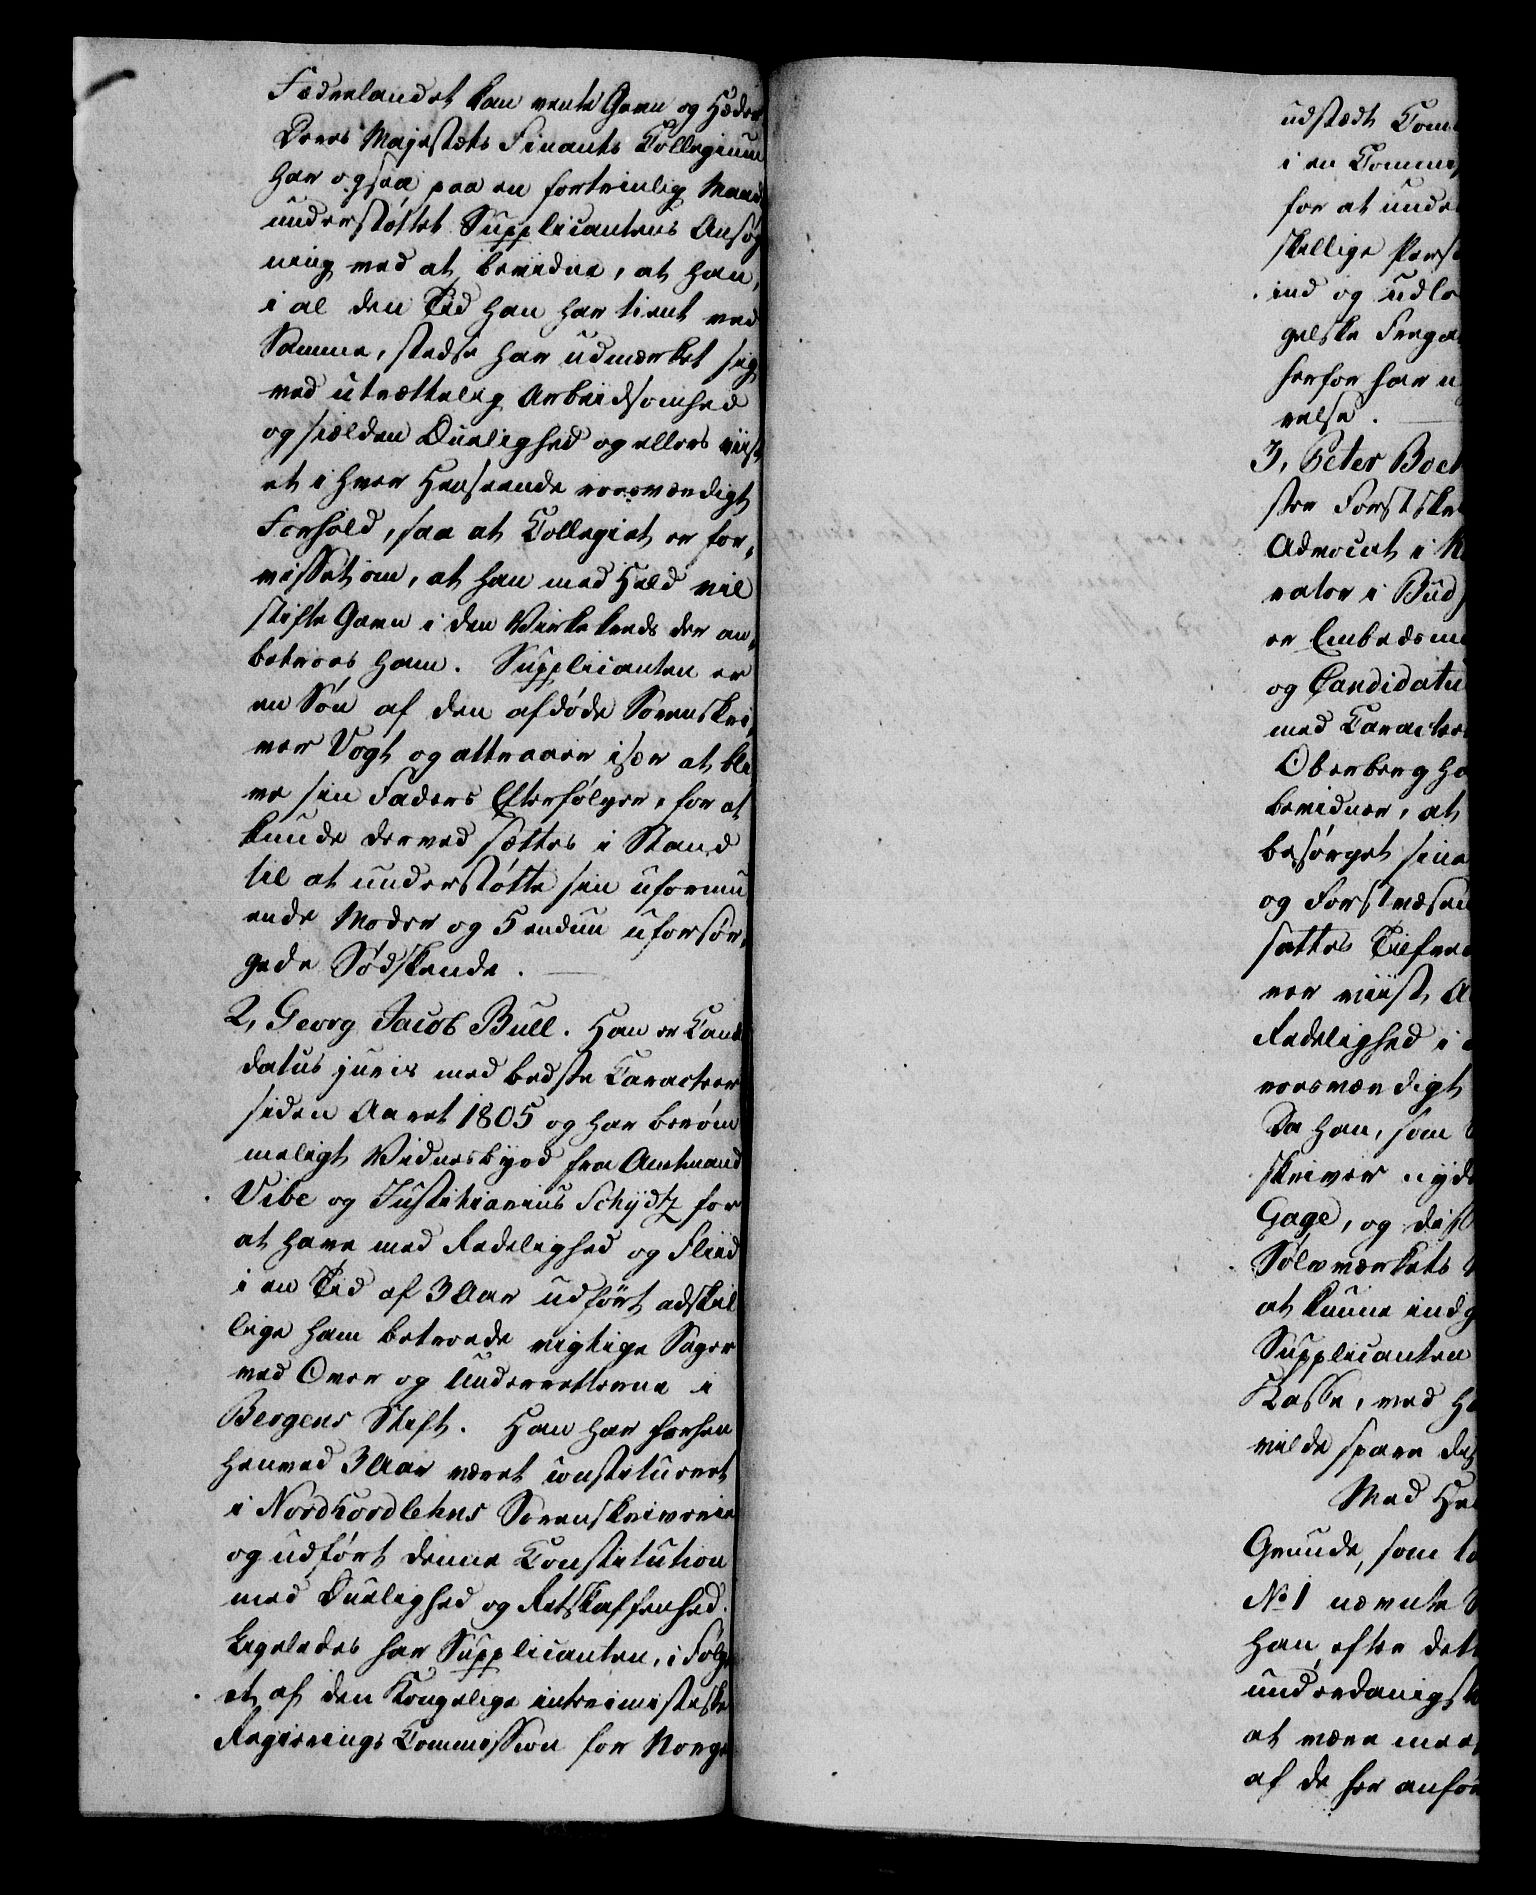 Fædrelandet kan vente Gavn og Hæder
Deres Majestæts Finants Collegium
har ogsaa paa en fortrinlig Maade
understøttet Supplicantens Ansøg
ning ved at bevidne, at han,
i al den Tid han har tient ved
Samme, stedse har udmærket sig
ved utrættelig Arbeidsomhed
og sielden Duelighed og ellers viist
et i hver Henseende roesværdigt
Forhold, saa at Collegiet er for,
visset om, at han med Held vil
stifte Gavn i den Virkekreds der an,
betroes ham. Supplicanten er
en Søn af den afdøde Sorenskri,
ver Vogt og attraaer især at bli
ve sin Faders Efterfølger, for at
kunde derved sættes i Stand
til at understøtte sin uformu
ende Moder og 5 endnu uforsør,
gede Sødskende.
2, Georg Jacob Bull. Han er Candi
datus juris med bedste Caracteer
siden Aaret 1805 og har berøm
meligt Vidnesbyrd fra Amtmand
Vibe og Justitiarius Schydtz for
at have med Redelighed og Fliid
i en Tid af 3 Aar udført adskil
lige ham betroede vigtige Sager
ved Over og Underretterne i
Bergens Stift. Han har forhen
henved 3 Aar været constitueret
i Nordhordlehns Sorenskriverie
og udført denne Constitution
med Duelighed og Retskaffenhed.
Ligeledes har Supplicanten, i Følge
et af den Kongelige interimistiske
Regierings Commission for Norge
udstædt Com
i en Commis
for at unde
skellige Perso
ind og udlo
gelske Frega
herfor har
velse.
3, Peter Boek
ster Forstskr
Advocat i
rator i Bud
er Embedsm
og Candidatu
med Caracter
Oberbergha
bevidner, at
besørget sine
og Forstvæsen
sattes Tilfre
ver viist, A
Redelighed i
roesværdigt
Da han, som
skriver nyde
Gage, og des
Sølvværkets
at kunne indg
Supplicanten
Kasse, ved H
vilde spare
Med He
Grunde, som
No 1 nævnte S
han efter det
underdanigst
at være mee
af de her anfør